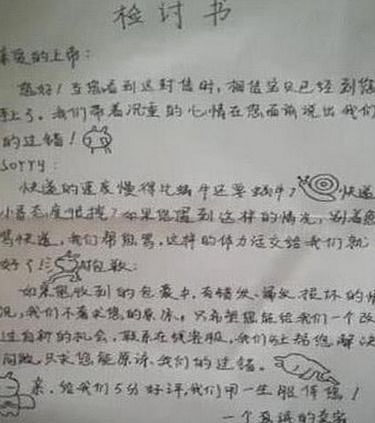 检讨书
亲爱的上帝：
您好！当您看到这封信时，相信宝贝已经到您
手上了。我们带着沉重的心情在您面前说出我们
的过错！
sorry：
快递的速度慢得比蜗牛还要蜗牛？快递
小哥态度低挫？如果您遇到这样的情况，别着急
骂快递，我们帮您骂，这样的体力活交给我们就
好了！抱歉：
如果您收到的包裹中，有错发、漏发、损坏的情
况，我们不奢求您的原谅，只希望您能给我们一个改
过自新的机会，联系在线客服，我们马上帮您解决
问题，只求您能原谅我们的过错。
亲，给我们5分好评，我们用一生服侍您！
一个真诚的卖家